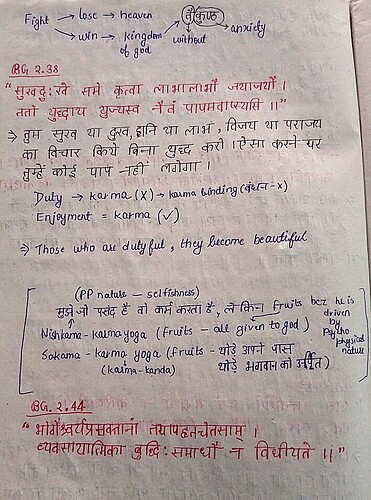 Fight → lose → heaven
→ win → kingdom of god → वैकुण्ठ
without
anxiety
BG 2.38
"सुखदुःखे समे कृत्वा लाभालाभौ जयाजयौ।
ततो युद्धाय युज्यस्व नैवं पापमवाप्स्यसि॥"
⇒ तुम सुख या दुख, हानि या लाभ, विजय या पराजय
का विचार किये बिना युद्ध करो। ऐसा करने पर
तुम्हें कोई पाप नहीं लगेगा।
Duty → karma (X) → karma binding (बंधन - X)
Enjoyment = karma (✓)
⇒ Those who are dutyful, they become beautiful
(PP nature - selfishness)
मुझे जो पसंद है वो कर्म करता है, लेकिन fruits bcz he is driven by psycho physical nature
Nishkama-karmayoga (fruits - all given to god)
Sakama-karma yoga (fruits - थोड़े अपने पास
(karma-kanda) थोड़े भगवान को अर्पित)
BG. 2.44
"भोगैश्वर्यप्रसक्तानां तयापहृतचेतसाम्।
व्यवसायात्मिका बुद्धिः समाधौ न विधीयते॥"